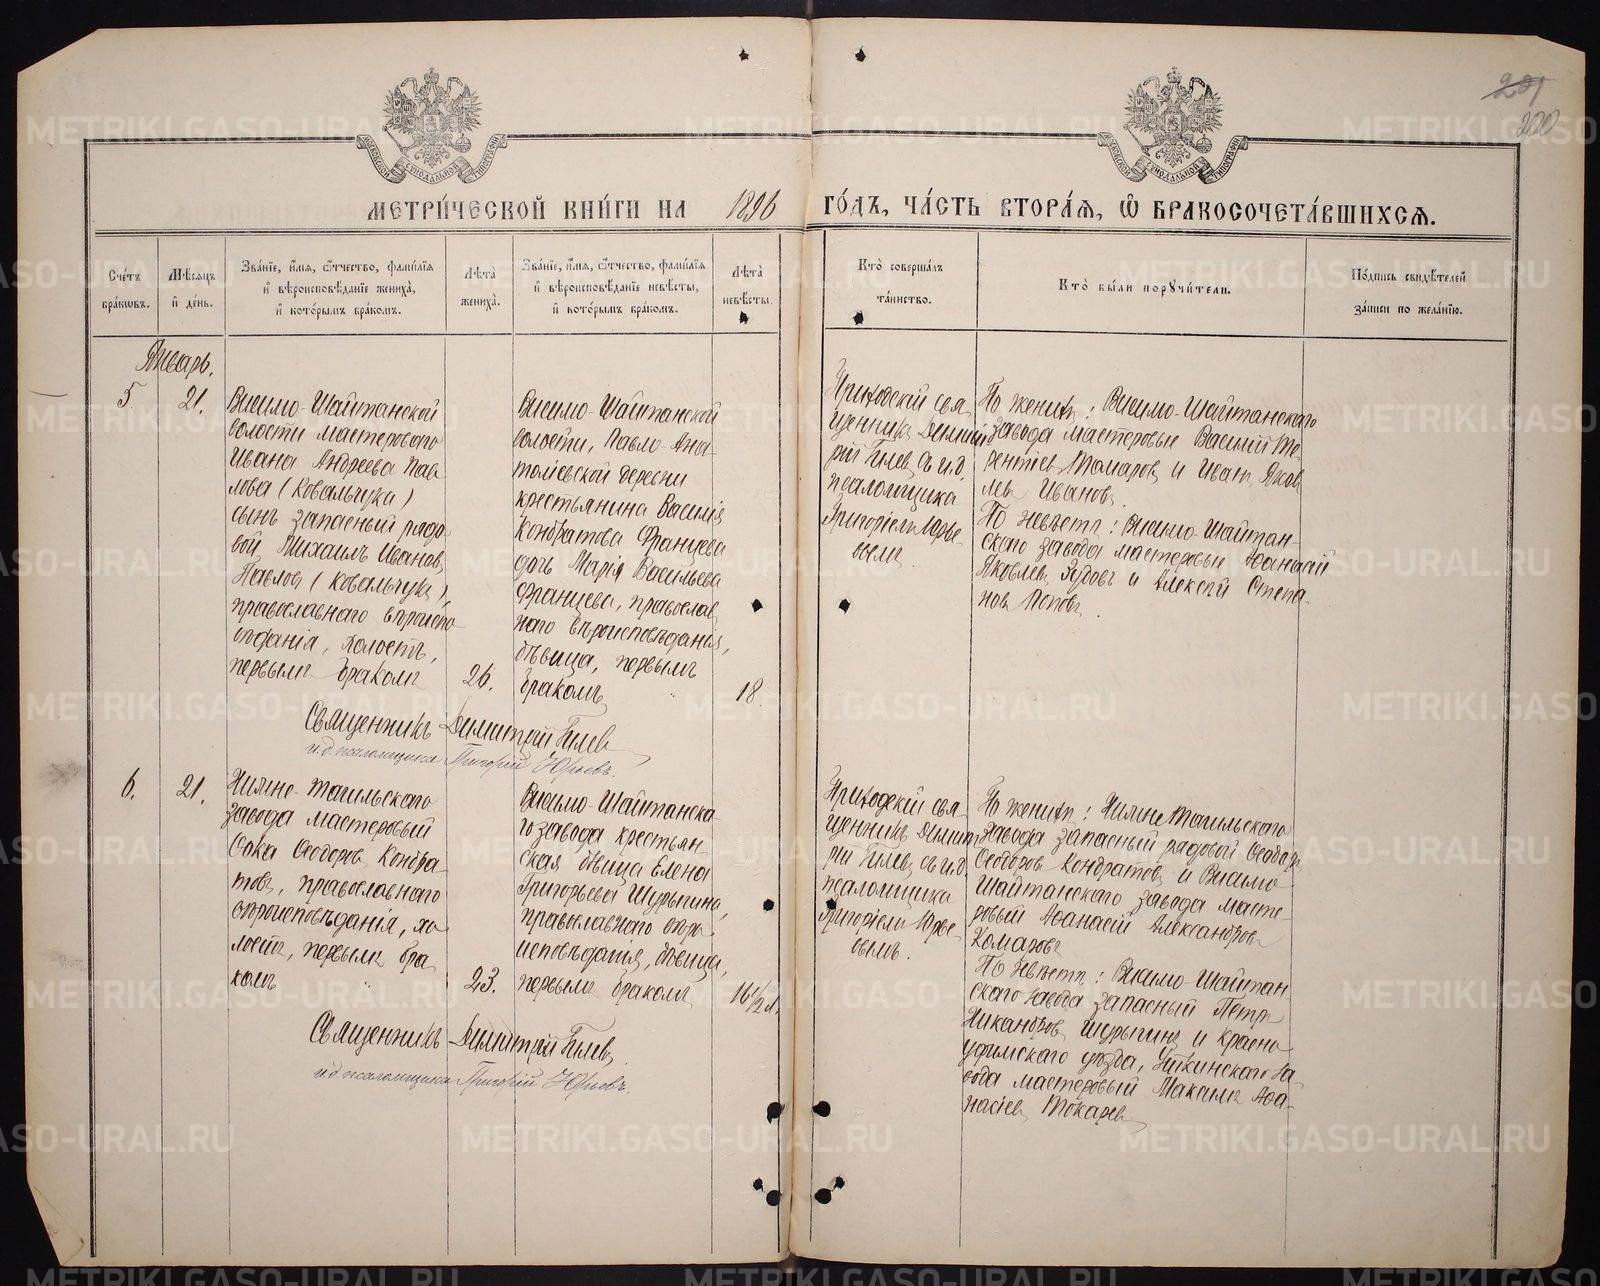 201
200
МОСКОВСКОЙ СѴНОДАЛЬНОЙ ТИПОГРАФІИ
МОСКОВСКОЙ СѴНОДАЛЬНОЙ ТИПОГРАФІИ
МЕТРИ́ЧЕСКОЙ КНИ́ГИ НА 1896 ГО́ДЪ, ЧА́СТЬ ВТОРА́Я, Ѿ БРАКОСОЧЕТА́ВШИХСЯ.
Счетъ
браковъ.
Мѣсяцъ
и день.
Званіе, имя, отчество, фамилія
и вѣроисповѣданіе жениха,
и которымъ бракомъ.
Лѣта
жениха.
Званіе, имя, отчество, фамилія
и вѣроисповѣданіе невѣсты,
и которымъ бракомъ.
Лѣта
невѣсты.
Кто совершалъ
таинство.
Кто были поручители.
Подпись свидѣтелей
записи по желанію.
Январь.
5.
21.
Висимо-Шайтанской
волости мастероваго
Ивана Андреева Пав
лова (Ковальчука)
сынъ запасный рядо
вой, Михаилъ Иванов
Павлов (Ковальчукъ),
православнаго вѣроиспо
вѣданія, холостъ,
первымъ бракомъ
26.
Висимо-Шайтанской
волости, Павло-Ана
толіевской деревни
крестьянина Василія
Кондратова Францева
дочь Марія Васильева
Францева, православ
наго вѣроисповѣданія,
дѣвица, первымъ
бракомъ
18.
Приходскій свя
щенникъ Димит
рій Гилев съ и.д.
псаломщика
Григоріемъ Юрье
вымъ.
По женихѣ: Висимо-Шайтанскаго
завода мастеровые Василій Те
рентіевъ Комаровъ и Иванъ Яков
левъ Ивановъ.
По невѣстѣ: Висимо-Шайтан
скаго завода мастеровые Аѳанасій
Яковлевъ Зудовъ и Алексѣй Степа
новъ Поповъ.
Священникъ Димитрій Гилев
и.д. псаломщика Григорій Юрьевъ.
6.
21.
Нижне-Тагильскаго
завода мастеровый
Савва Ѳеодоровъ Кондра
товъ, православнаго
вѣроисповѣданія, хо
лостъ, первымъ бра
комъ
23.
Висимо-Шайтанска
го завода крестьян
ская дѣвица Елена
Григорьева Шурыгина,
православнаго вѣро
исповѣданія, дѣвица,
первымъ бракомъ
16 1/2 л.
Приходскій свя
щенникъ Димит
рій Гилевъ съ и.д.
псаломщика
Григоріемъ Юрье
вымъ.
По женихѣ: Нижне Тагильскаго
завода запасный рядовой Ѳеодоръ
Ѳеодоровъ Кондратовъ и Висимо
Шайтанскаго завода масте
ровый Аѳанасій Александровъ
Комаровъ
По невѣстѣ: Висимо-Шайтан
скаго завода запасный Петръ
Никандровъ Шурыгинъ и Красно
уфимскаго уѣзда, Уткинскаго за
вода мастеровый Максимъ Аѳа
насіевъ Токаревъ
Священникъ Димитрій Гилевъ
и.д. псаломщика Григорій Юрьевъ.